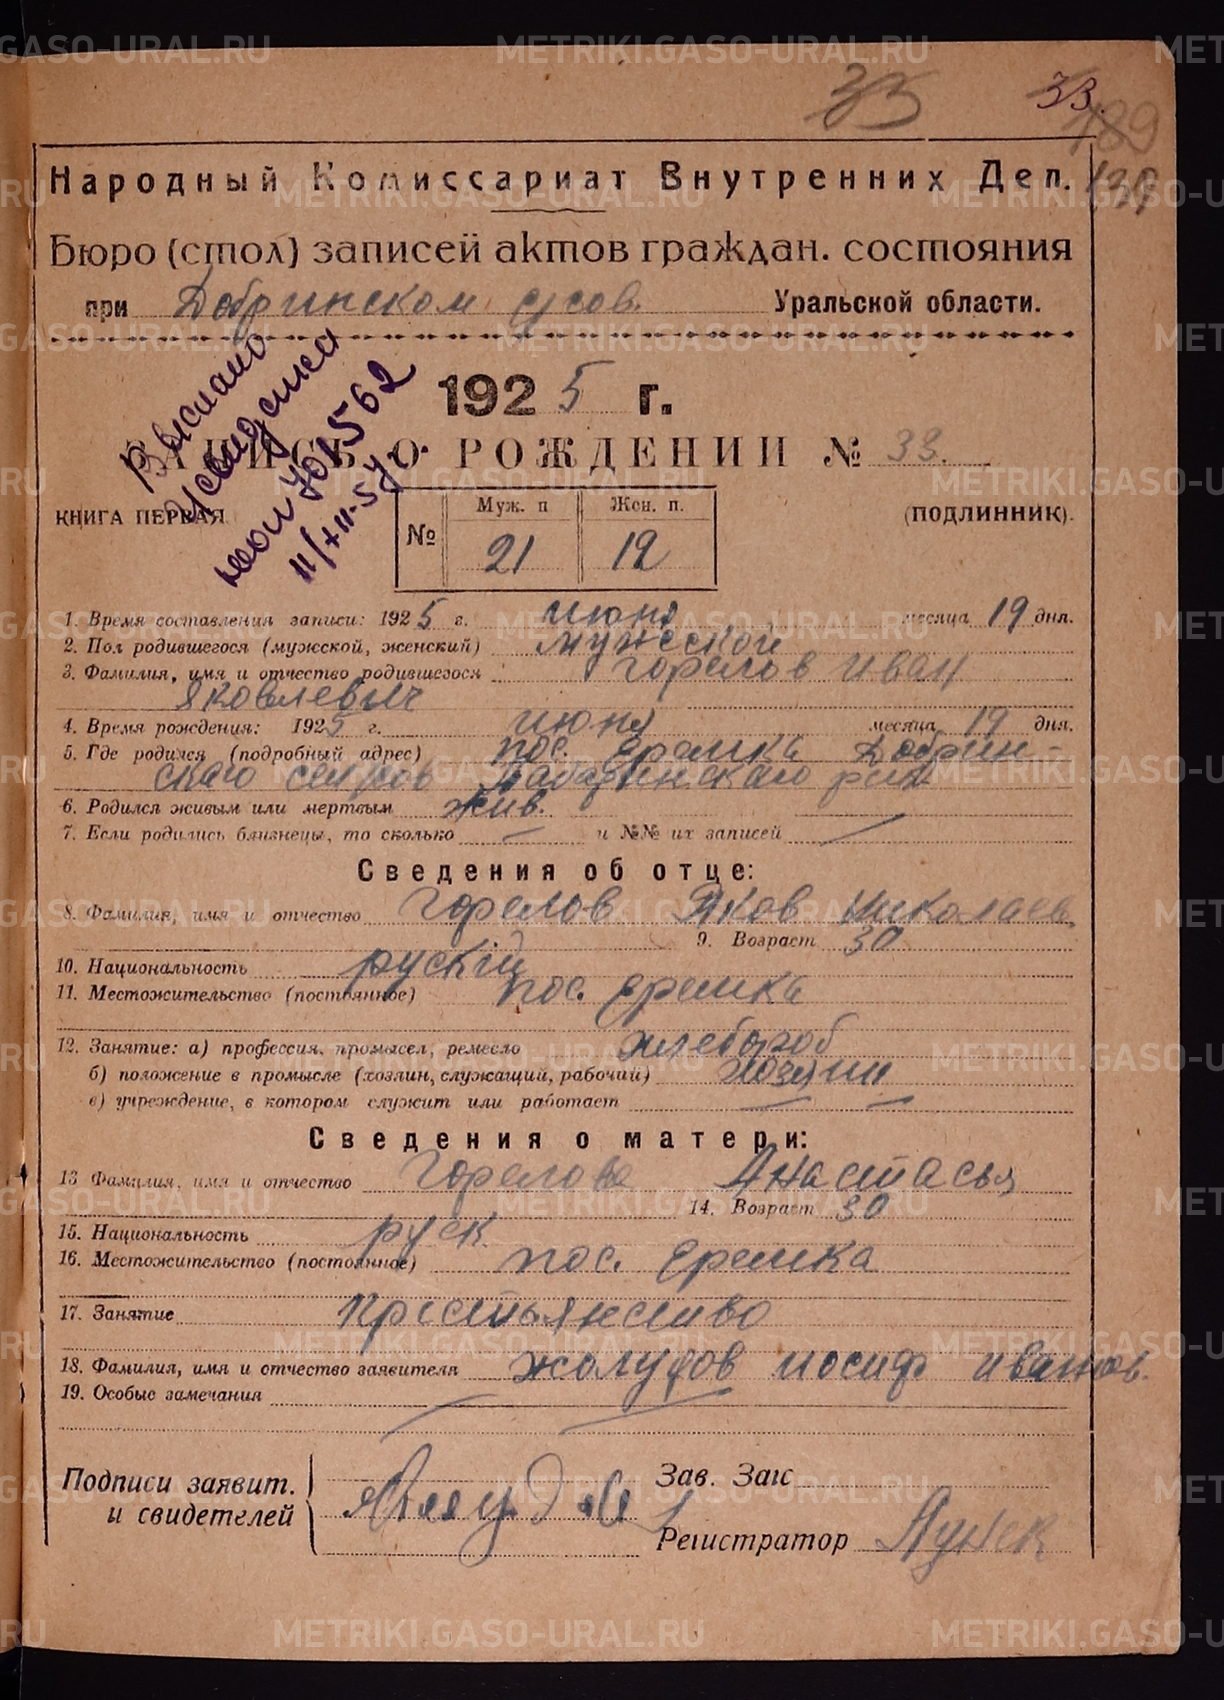 33 33.
189
Народный Комиссариат Внутренних Дел. 139
Бюро (стол) записей актов граждан. состояния
при Добринском с/сов. Уральской области.
Выслано
свидет
11/XII-57 г.
1925 г.
ЗАПИСЬ О РОЖДЕНИИ № 33.
КНИГА ПЕРВАЯ (ПОДЛИННИК).
№ Муж. п Жен. п.
21 12
1. Время составления записи: 1925 г. июня месяца 19 дня.
2. Пол родившегося (мужской, женский) мужеской
3. Фамилия, имя и отчество родившегося Горелов Иван
Яковлевич
4. Время рождения: 1925 г. июня месяца 19 дня.
5. Где родился (подробный адрес) пос. Еремка Добрин-
скаго сельсов Табаринскаго рна
6. Родился живым или мертвым жив.
7. Если родились близнецы, то сколько — и №№ их записей —
Сведения об отце:
8. Фамилия, имя и отчество Горелов Яков Николаев
9. Возраст 30
10. Национальность рускій
11. Местожительство (постоянное) пос. Еремка
12. Занятие: а) профессия, промысел, ремесло хлебороб
б) положение в промысле (хозяин, служащий, рабочий) хозяин
в) учреждение, в котором служит или работает — —
Сведения о матери:
13 Фамилия, имя и отчество Горелова Анастасья
14. Возраст 30
15. Национальность руск.
16. Местожительство (постоянное) пос. Еремка
17. Занятие Крестьянство
18. Фамилия, имя и отчество заявителя Жолудов Иосиф Иванов.
19. Особые замечания — —
Подписи заявит. Зав. Загс
и свидетелей
Регистратор